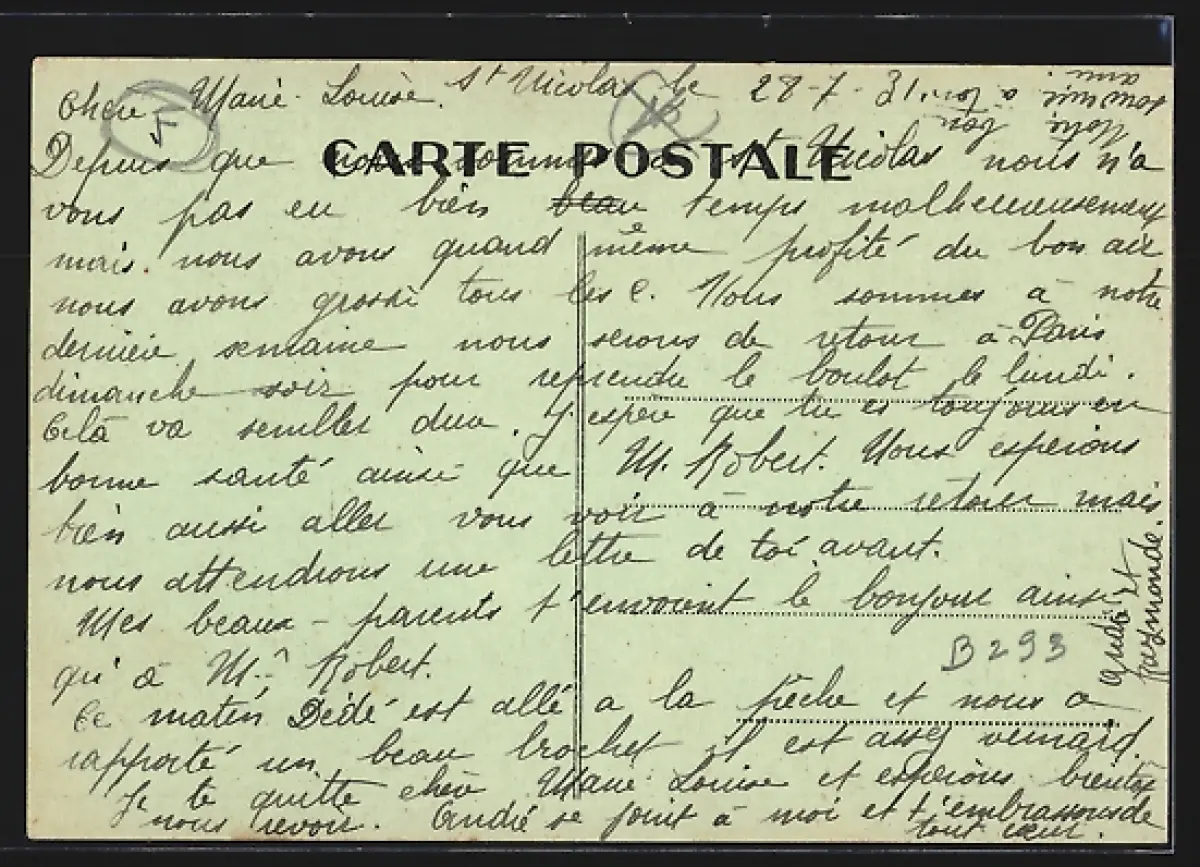 St Nicolas le 28-7-31
Chère Marie-Louise.
F
CARTE POSTALE
Depuis que nous sommes a St Nicolas nous n'a
vous pas eu bien beau temps malheureusement
mais nous avons quand même profité du bon air
nous avons grossi tous les e. Nous sommes à notre
dernière semaine nous serons de retour à Paris
dimanche soir pour reprendre le boulot le lundi.
Celà va sembler dur. J'espère que tu es toujours en
bonne santé ainsi que M. Robert. Nous esperions
bien aussi aller vous voir à notre retour mais
nous attendrons une lettre de toi avant.
Mes beaux-parents t'envoient le bonjour ainsi
qu'à Mr Robert.
B293
Ce matin Dédé est allé a la pêche et nous a
rapporté un beau brochet il est assez veinard.
Je te quitte chère Marie Louise et esperons bientôt
nous revoir. André se joint à moi et t'embrassons de
tout cœur.
André et
Raymonde.